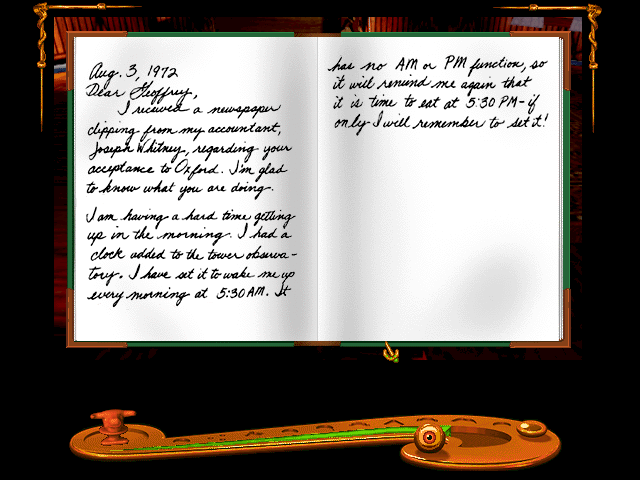 Aug. 3, 1972
Dear Geoffrey,
I received a newspaper
clipping from my accountant,
Joseph Whitney, regarding your
acceptance to Oxford. I'm glad
to know what you are doing.
I am having a hard time getting
up in the morning. I had a
clock added to the tower observa-
tory. I have set it to wake me up
every morning at 5:30 AM. It
has no AM or PM function, so
it will remind me again that
it is time to eat at 5:30 PM - if
only I will remember to set it!